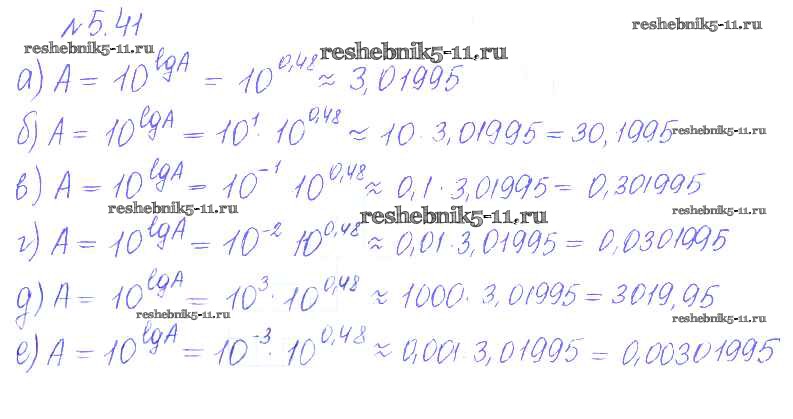 №5.41
reshebnik5-11.ru
reshebnik5-11.ru
reshebnik5-11.ru
а) A = 10^lgA = 10^0,48 ≈ 3,01995
б) A = 10^lgA = 10^1 · 10^0,48 ≈ 10 · 3,01995 = 30,1995
reshebnik5-11.ru
в) A = 10^lgA = 10^-1 10^0,48 ≈ 0,1 · 3,01995 = 0,301995
reshebnik5-11.ru
reshebnik5-11.ru
reshebnik5-11.ru
г) A = 10^lgA = 10^-2 10^0,48 ≈ 0,01 · 3,01995 = 0,0301995
д) A = 10^lgA = 10^3 · 10^0,48 ≈ 1000 · 3,01995 = 3019,95
reshebnik5-11.ru
reshebnik5-11.ru
е) A = 10^lgA = 10^-3 · 10^0,48 ≈ 0,001 · 3,01995 = 0,00301995